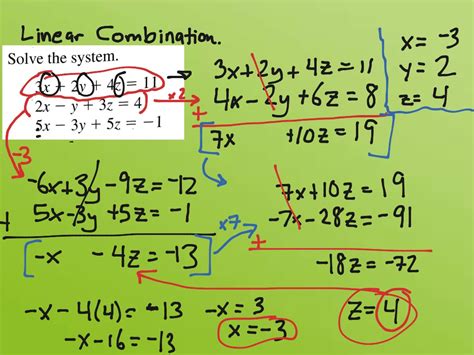 Linear Combination.
Solve the system.
3x + 2y + 4z = 11
2x − y + 3z = 4
5x − 3y + 5z = −1
x2
-3
3x+2y+4z=11
4x-2y+6z=8
+
7x +10z=19
x=-3
y=2
z=4
-6x+3y-9z=-12
5x-3y+5z=-1
+
-x -4z=-13
x7
7x+10z=19
-7x-28z=-91
+
-18z=-72
z=4
-x-4(4)=-13
-x-16=-13
-x=3
x=-3